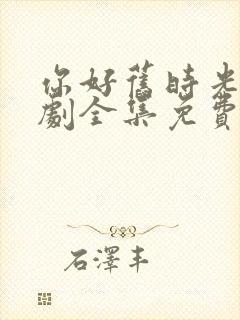 你好舊時光
劇全集免費
石澤丰